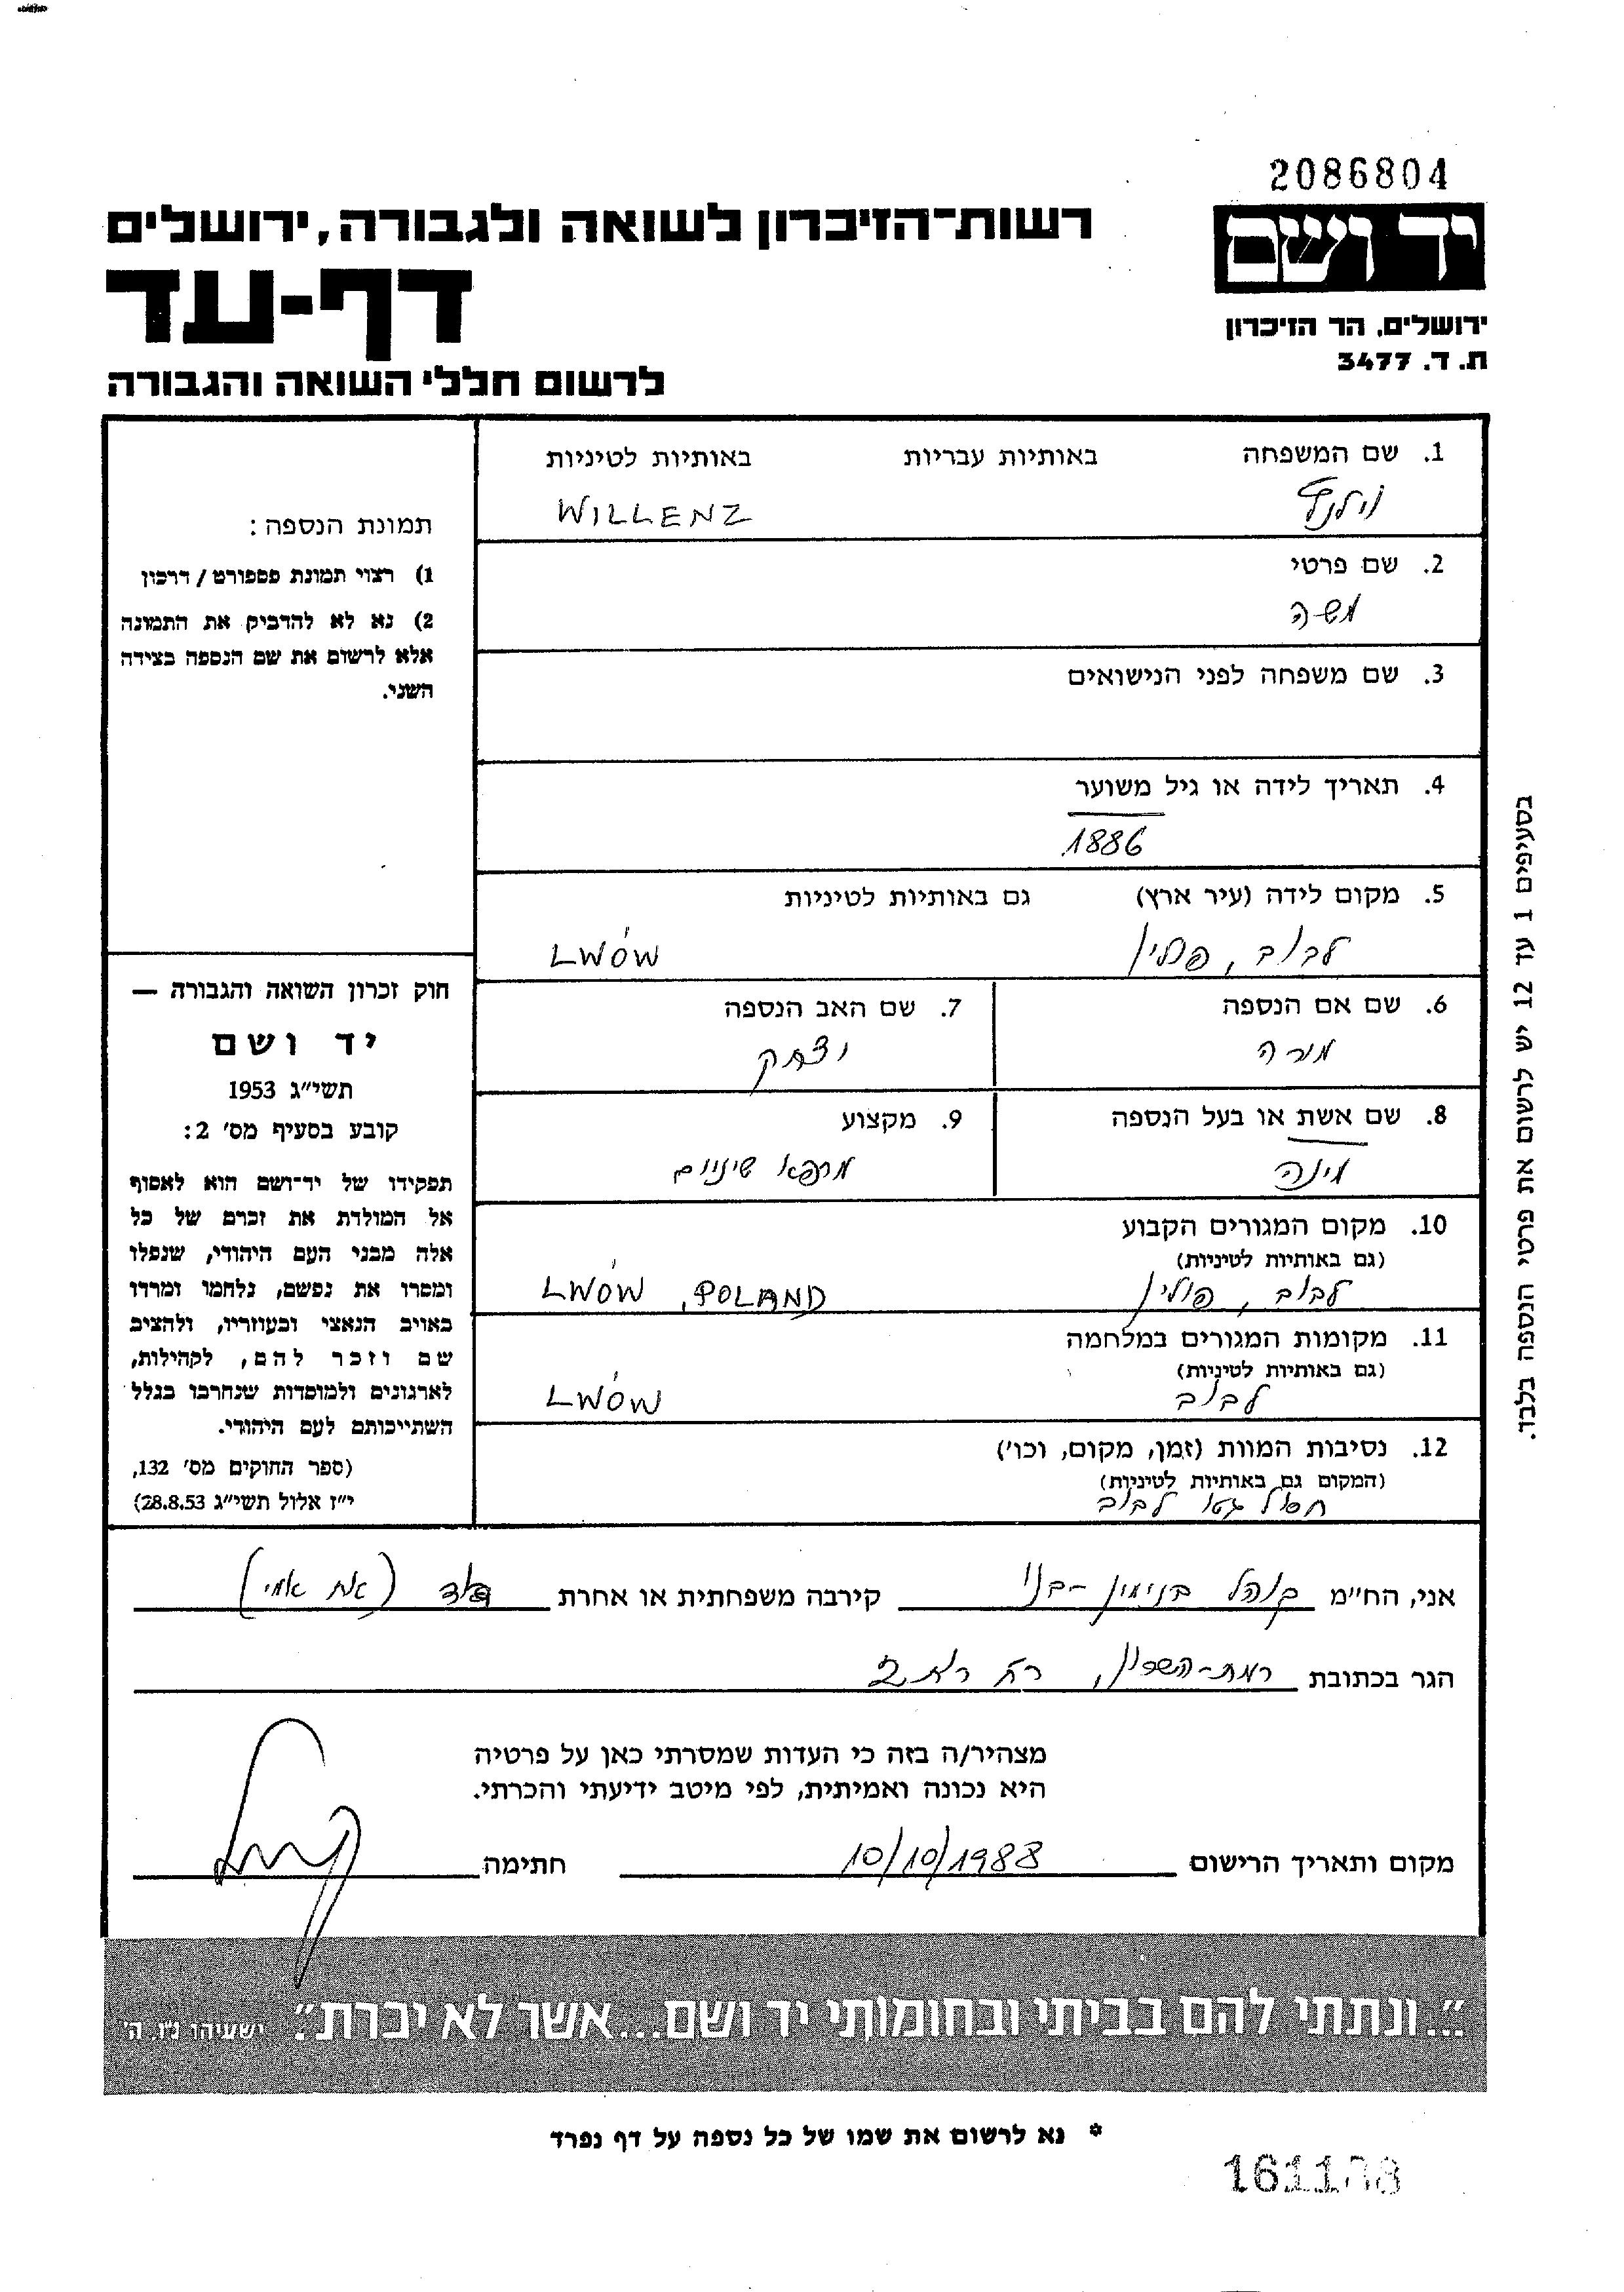 2086804
יד ושם
רשות־הזיכרון לשואה ולגבורה, ירושלים
דף-עד
ירושלים, הר הזיכרון
ת. ד. 3477
לרשום חללי השואה והגבורה
1. שם המשפחה באותיות עבריות באותיות לטיניות
וילנץ WILLENZ
2. שם פרטי
משה
3. שם משפחה לפני הנישואים
4. תאריך לידה או גיל משוער
1886
5. מקום לידה (עיר ארץ) גם באותיות לטיניות
לבוב, פולין LWÓW
6. שם אם הנספה 7. שם האב הנספה
יצחק
8. שם אשת או בעל הנספה 9. מקצוע
מינה מרפא שיניים
10. מקום המגורים הקבוע
(גם באותיות לטיניות)
לבוב, פולין LWÓW, POLAND
11. מקומות המגורים במלחמה
(גם באותיות לטיניות)
לבוב LWÓW
12. נסיבות המוות (זמן, מקום, וכו')
(המקום גם באותיות לטיניות)
חסול גטו לבוב
תמונת הנספה:
1) רצוי תמונת פספורט/דרכון
2) נא לא להדביק את התמונה
אלא לרשום את שם הנספה בצידה
השני.
חוק זכרון השואה והגבורה —
יד ושם
תשי"ג 1953
קובע בסעיף מס' 2:
תפקידו של יד־ושם הוא לאסוף
אל המולדת את זכרם של כל
אלה מבני העם היהודי, שנפלו
ומסרו את נפשם, נלחמו ומרדו
באויב הנאצי ובעוזריו, ולהציב
שם וזכר להם, לקהילות,
לארגונים ולמוסדות שנחרבו בגלל
השתייכותם לעם היהודי.
(ספר החוקים מס' 132,
י"ז אלול תשי"ג 28.8.53)
בסעיפים 1 עד 12 יש לרשום את פרטי הנספה בלבד.
אני, החי"מ בנימין קירבה משפחתית או אחרת דוד (אח אמי)
הגר בכתובת רמת-השרון,
מצהיר/ה בזה כי העדות שמסרתי כאן על פרטיה
היא נכונה ואמיתית, לפי מיטב ידיעתי והכרתי.
מקום ותאריך הרישום 10/10/1988 חתימה
"...ונתתי להם בביתי ובחומותי יד ושם...אשר לא יכרת". ישעיהו נ"ו, ה'
* נא לרשום את שמו של כל נספה על דף נפרד